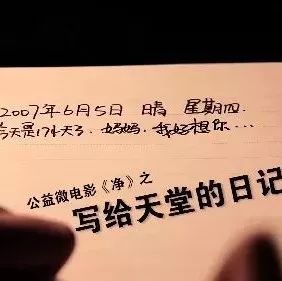 2007年6月5日 晴 星期四
今天是17个天了.妈妈.我好想你...
公益微电影《净》之
写给天堂的日记